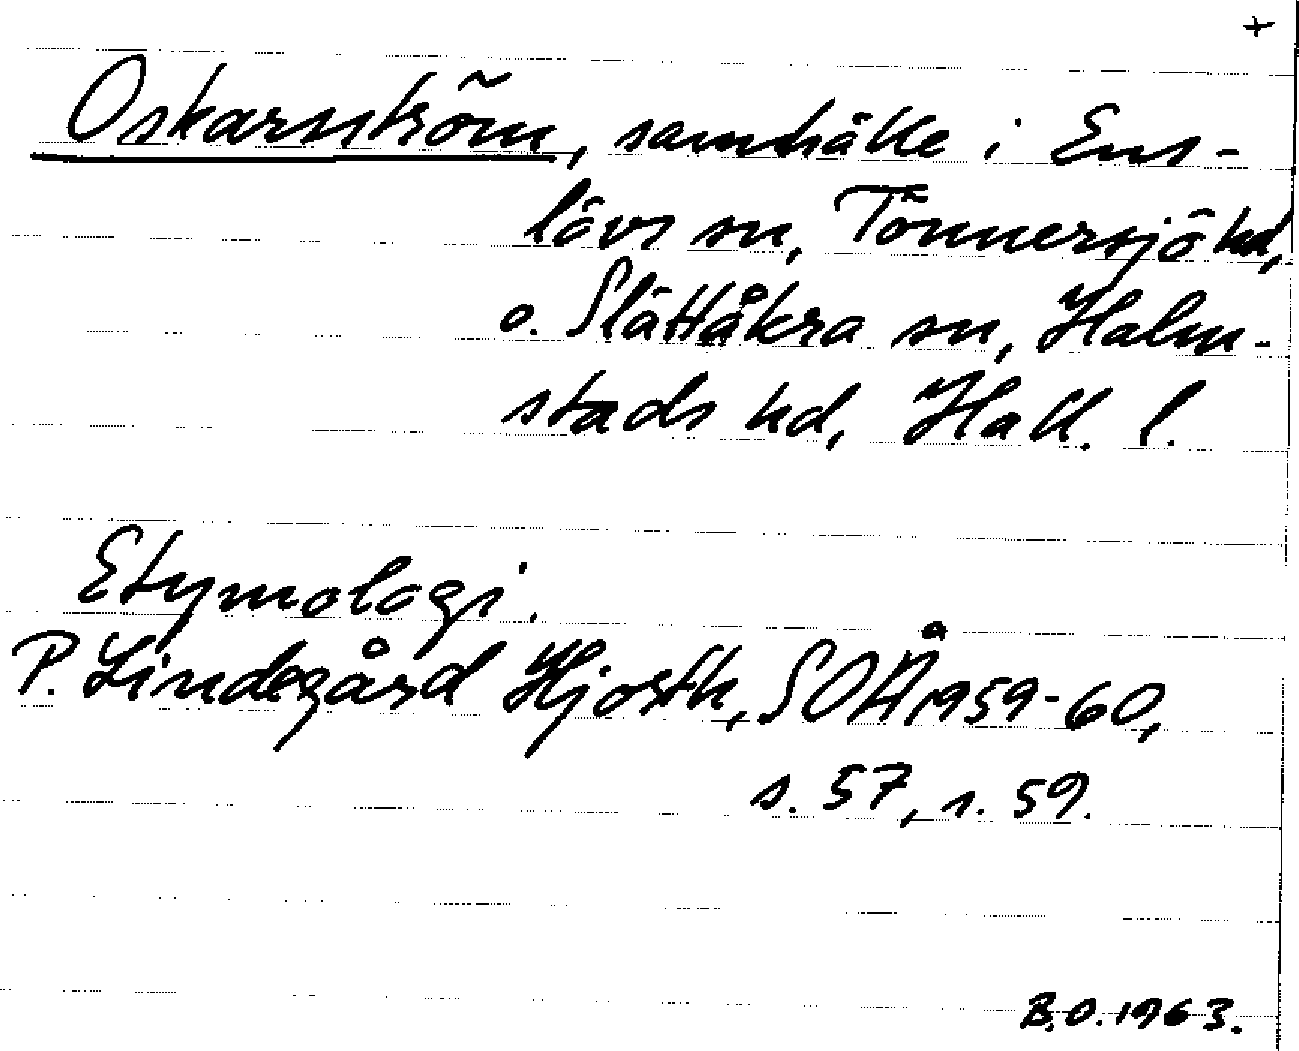 +
Oskarsström, samhälle i Ens-
lövs sn, Tönnersjö hd,
o. Slättåkra sn, Halm-
stads hd, Hall. l.
Etymologi.
P. Lindegård Hjorth, SOÅ 1959-60,
s. 57, s. 59.
B.O. 1963.